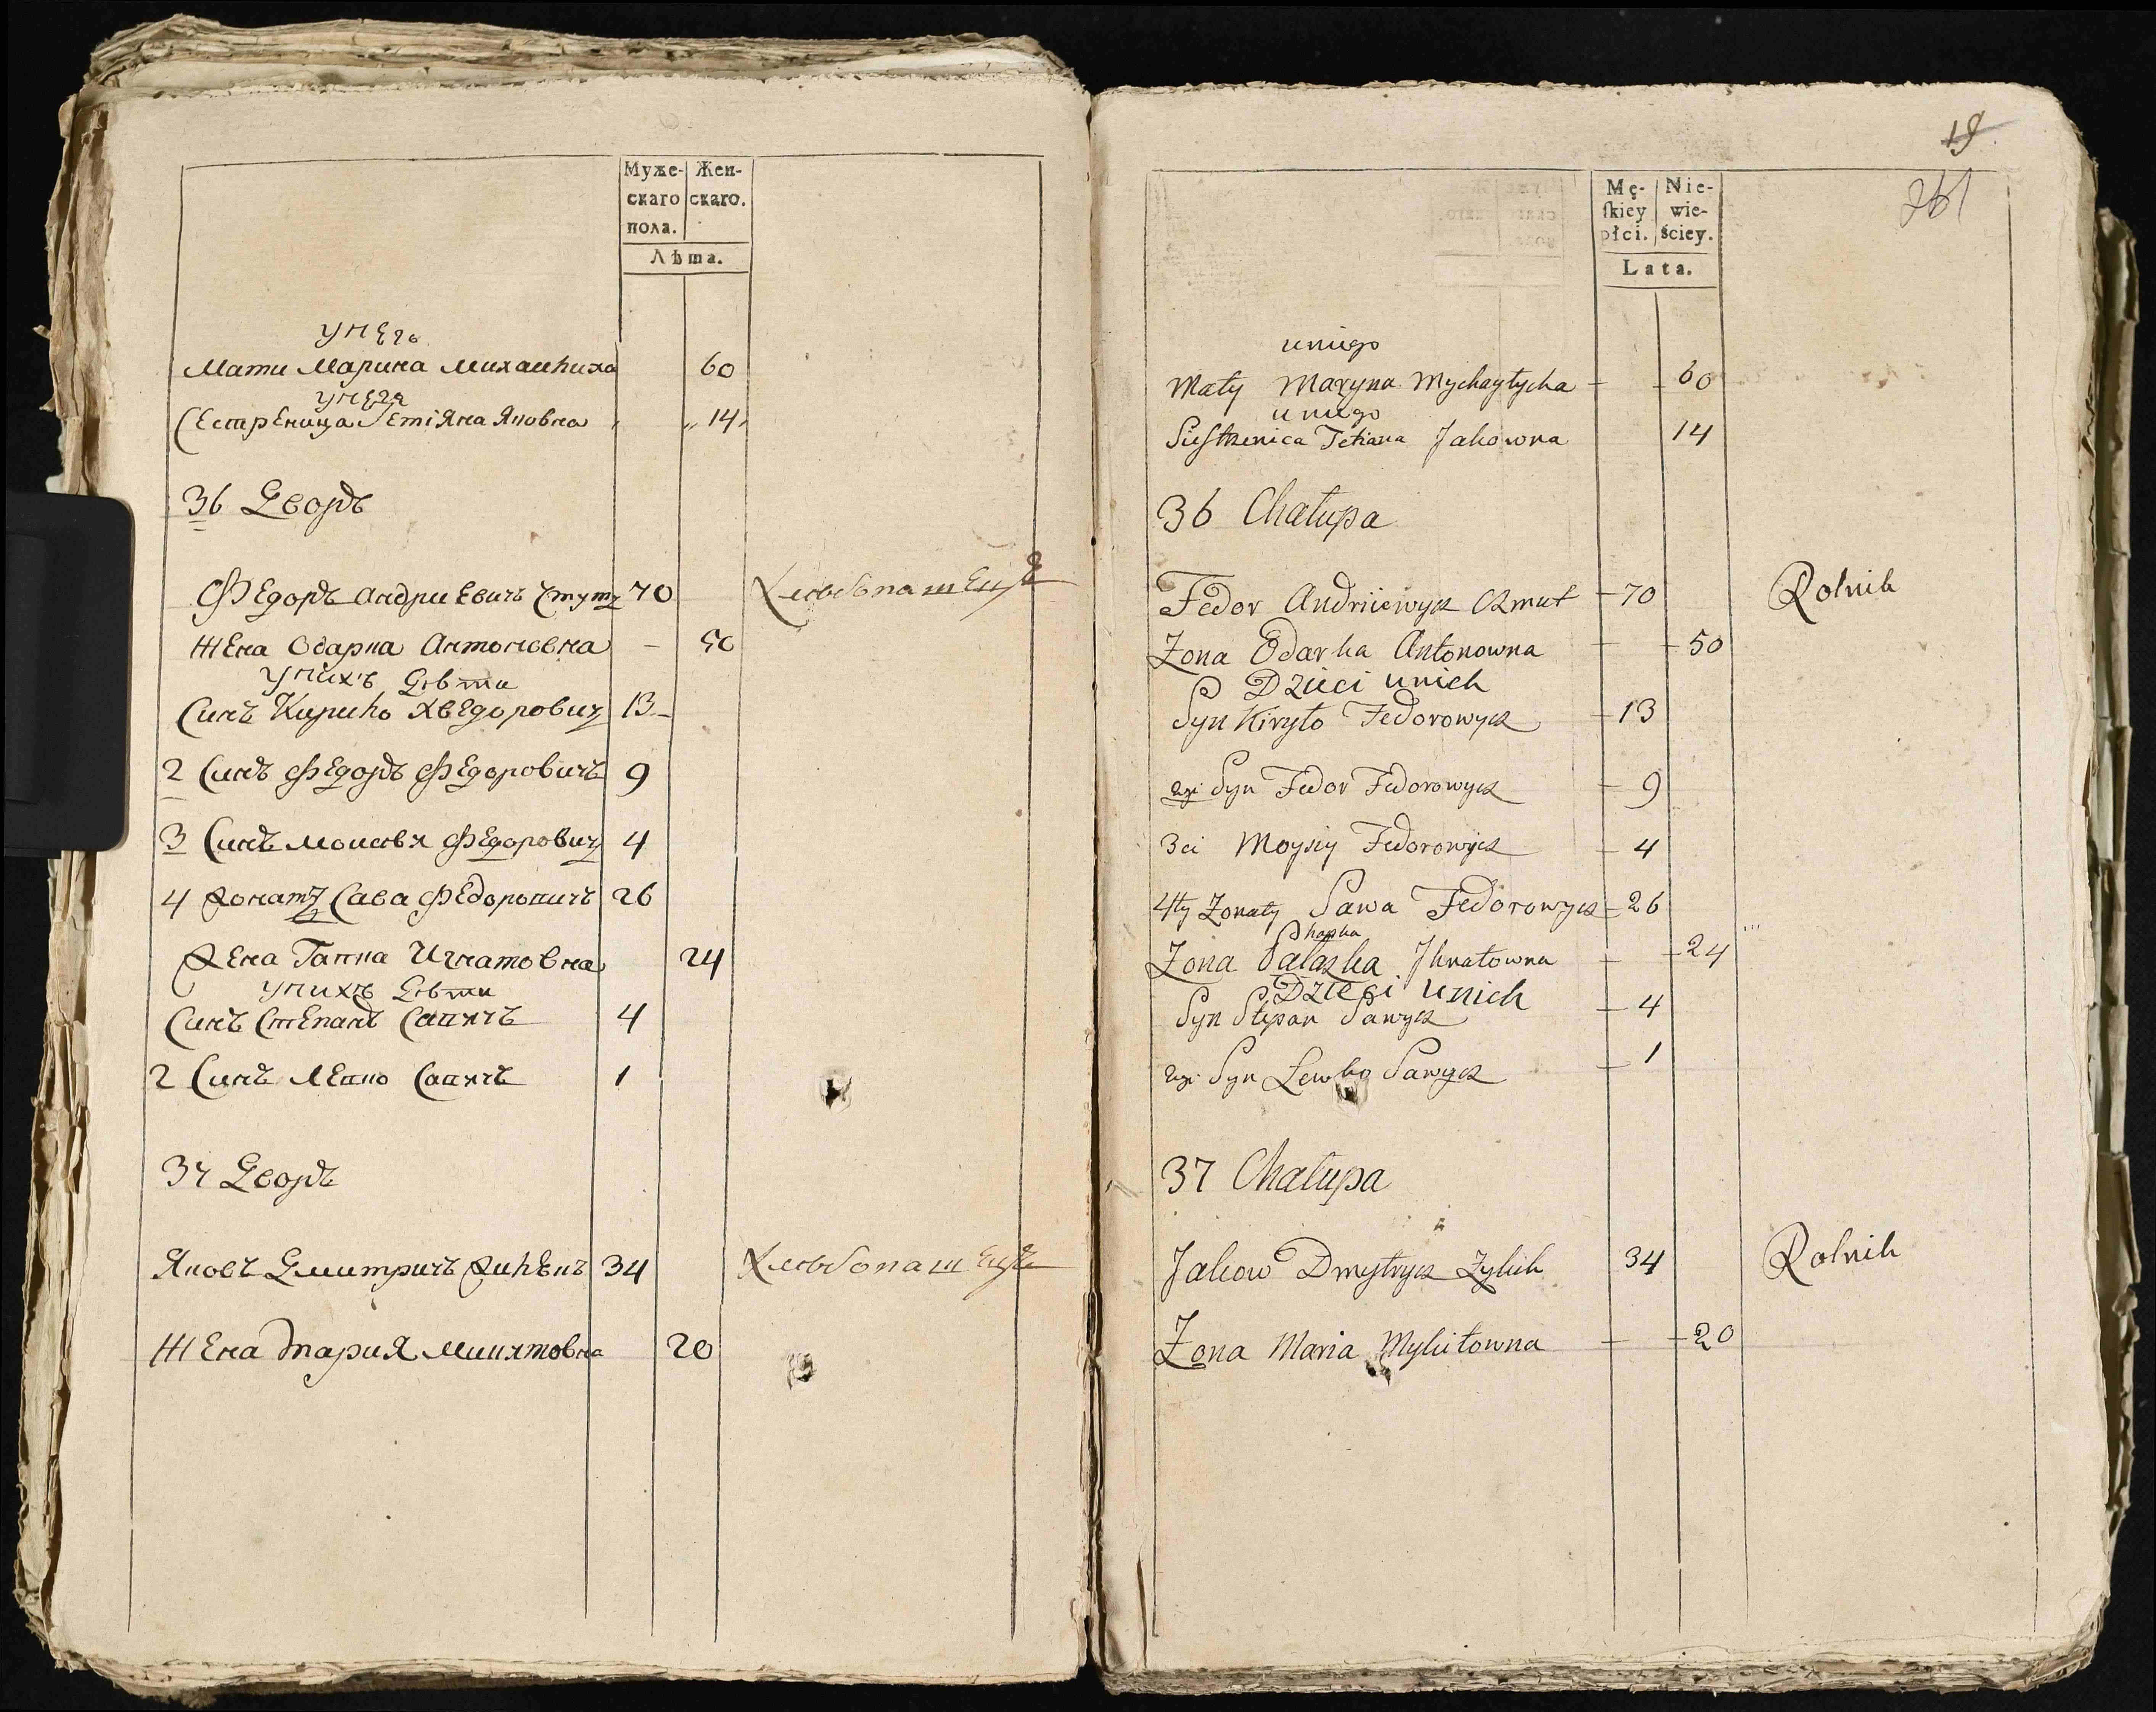 Муже-
скаго
пола.
Жен-
скаго.
Лѣта.
унего
Мати Марина Михайлиха 60
унего
Сестреница Тетіяна Яковна 14
36 Дворъ
Федоръ Андриевичъ 70 Хлебопашецъ
Жена Одарка Антоновна 50
уникъ дѣти
Синъ Кирило Хведоровичъ 13
2 Синъ Федоръ Федоровичъ 9
3 Синъ Моисѣй Федоровичъ 4
4 Жонатъ Сава Федоровичъ 26
Жена Гапка Игнатовна 24
унихъ дѣти
Синъ Степанъ Савичъ 4
2 Синъ Левко Савичъ 1
37 Дворъ
Яковъ Дмитричъ 34 Хлебопашецъ
Жена Мария Микитовна 20
19
261
Mę-
ſkiey
płci.
Nie-
wie-
ściey.
Lata.
uniego
Maty Maryna Mychayłycha 60
uniego
Siestrzenica Tetiana Jakowna 14
36 Chałupa
Fedor Andriiewycz Czmut 70 Rolnik
Zona Odarka Antonowna 50
Dzieci unich
Syn Kiryło Fedorowycz 13
2gi Syn Fedor Fedorowycz 9
3ci Moysiy Fedorowycz 4
4ty Zonaty Sawa Fedorowycz 26
hapka
Zona Pałazka Jhnatowna 24
Dzieci unich
Syn Stepan Sawycz 4
2gi Syn Lewko Sawycz 1
37 Chałupa
Jakow Dmytrycz 34 Rolnik
Zona Maria Mykitowna 20